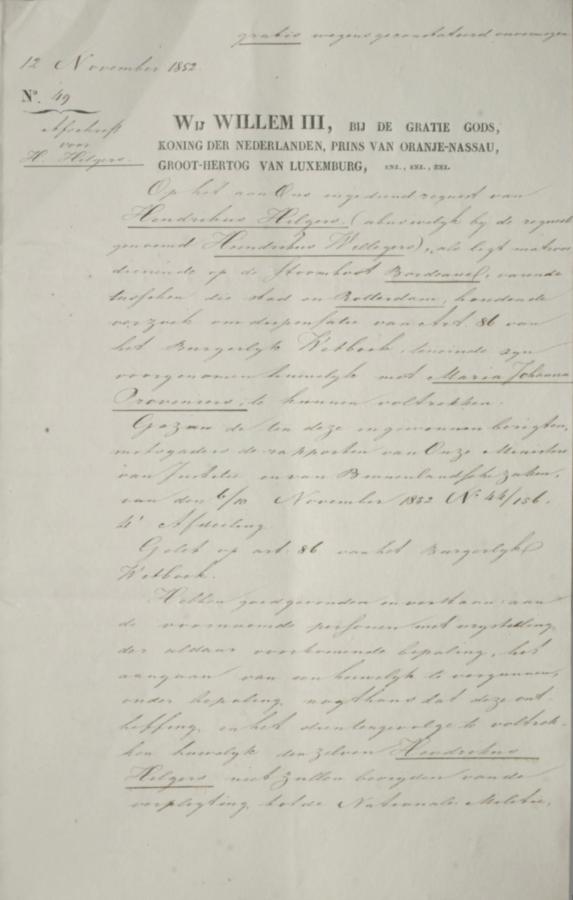 gratis wegens geconstateerd onvermogen
12 November 1852
No. 49
Afschrift
voor
H. Hilgers.
Wij WILLEM III, BIJ DE GRATIE GODS,
KONING DER NEDERLANDEN, PRINS VAN ORANJE-NASSAU,
GROOT-HERTOG VAN LUXEMBURG, ENZ., ENZ., ENZ.
Op het aan Ons ingediend request van
Hendrikus Hilgers, (abusivelijk bij de request
genoemd Hendrikus Willegers), als ligt matroos
dienende op de Stoomboot Bordeaux, varende
tusschen die stad en Rotterdam, houdende
verzoek om dispensatie van Art. 86 van
het Burgerlijk Wetboek, teneinde zijn
voorgenomen huwelijk met Maria Johanna
te kunnen voltrekken.
Gezien de ten deze ingewonnen berigten,
mitsgaders de rapporten van Onze Ministers
van Justitie en van Binnenlandsche Zaken,
van den 6/10 November 1852 No 44/156.
4e Afdeeling
Gelet op art. 86 van het Burgerlijk
Wetboek.
Hebben goedgevonden en verstaan: aan
de voornoemde personen met vrijstelling
der aldaar voorkomende bepaling, het
aangaan van een huwelijk te vergunnen,
onder bepaling nogthans dat deze ont-
heffing en het dientengevolge te voltrek-
ken huwelijk denzelven Hendrikus
Hilgers niet zullen bevrijden van de
verpligting tot de Nationale Militie,